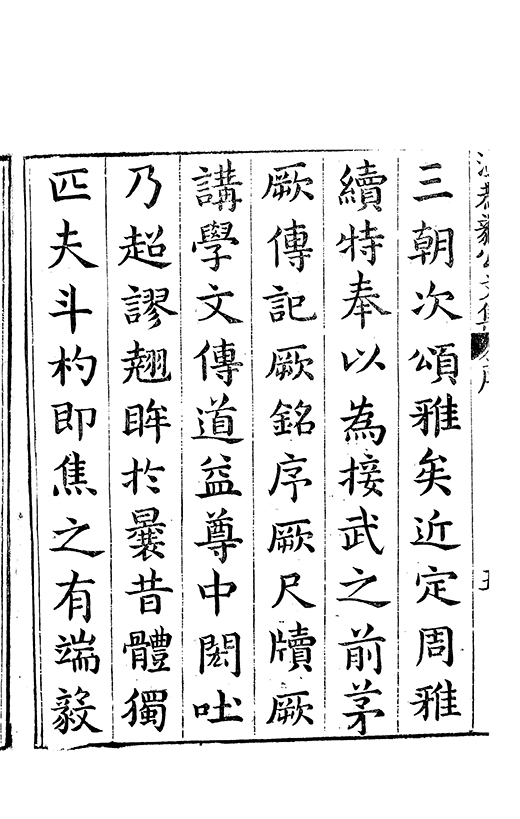 毅公文集
三朝次頌雅矣近定周雅
續特奉以為接武之前茅
厥傳記厥銘序厥尺牘厥
講學文傳道益尊中閎吐
乃超謬翹眸於曩昔體獨
匹夫斗杓即焦之有端毅